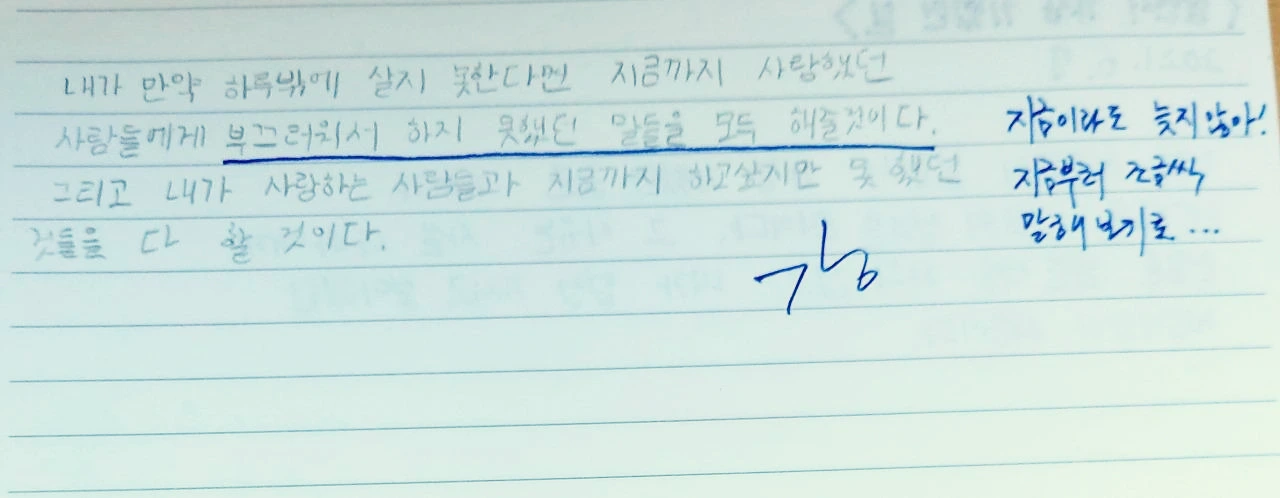 내가 만약 하루밖에 살지 못한다면 지금까지 사랑했던
사람들에게 부끄러워서 하지 못했던 말들을 모두 해줄것이다.
그리고 내가 사랑하는 사람들과 지금까지 하고싶지만 못했던
것들을 다 할 것이다.
지금이라도 늦지않아!
지금부터 조금씩
말해보기로...